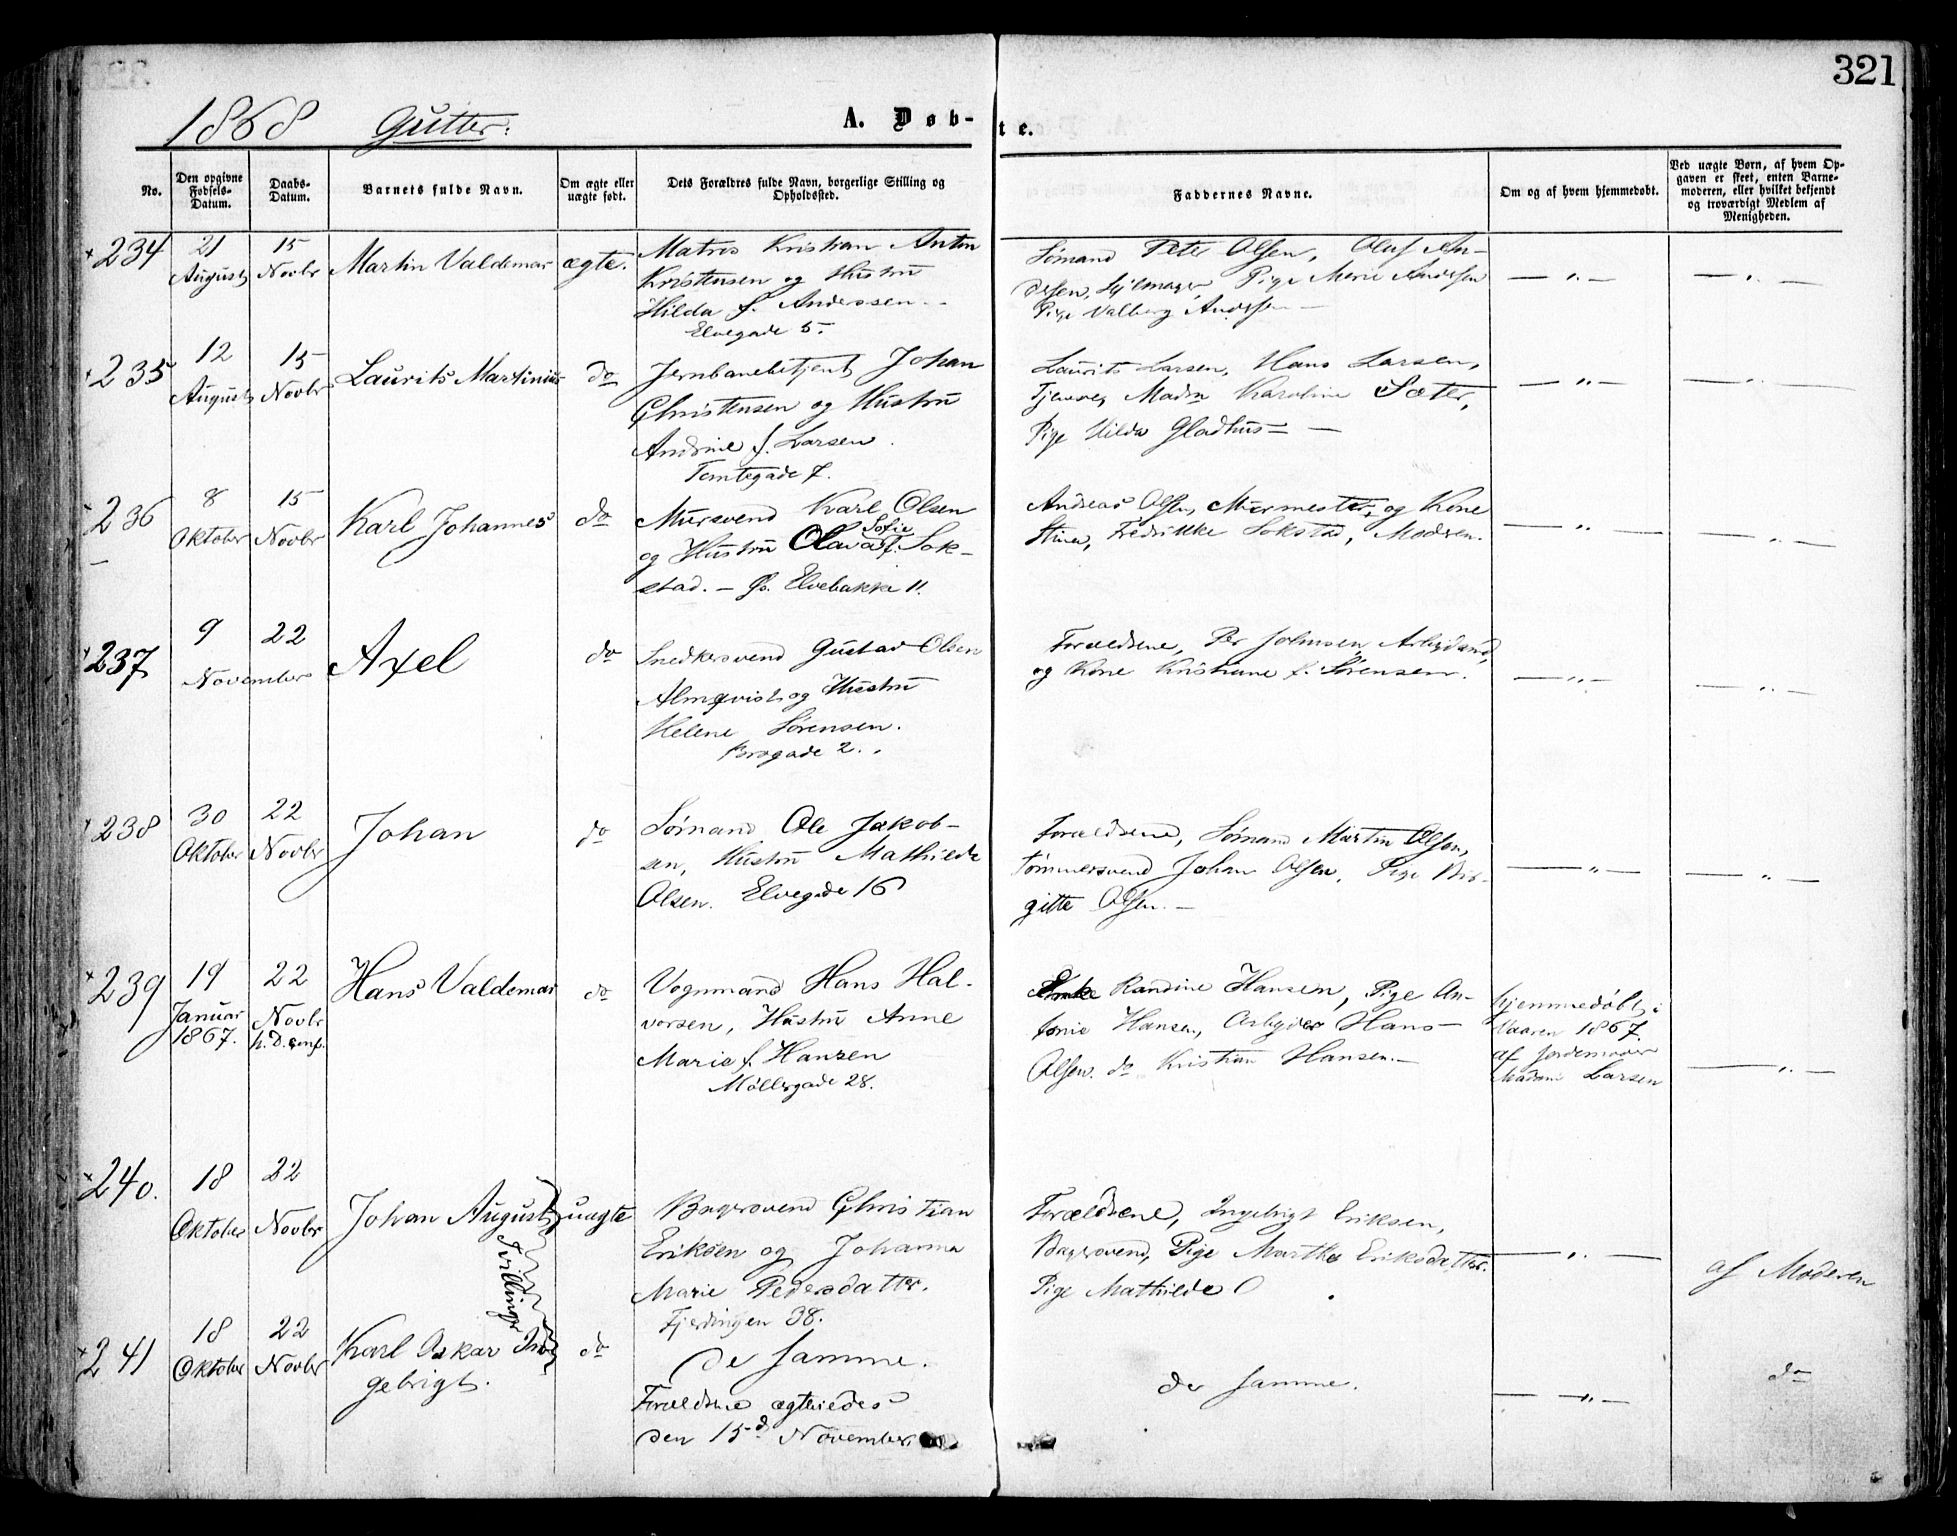 321
1868 Gutter.
A. Døb-
te.
No.
Den opgivne Fødsels-Datum.
Daabs-Datum.
Barnets fulde Navn.
Om ægte eller uægte født.
Dets Forældres fulde Navn, borgerlige Stilling og Opholdssted.
Faddernes Navne.
Om og af hvem hjemmedøbt.
Ved uægte Børn, af hvem Op-
gaven er skeet, enten Barne-
moderen, eller hvilket bekjendt
og troværdigt Medlem af
Menigheden.
234 21 August 15 Novbr Martin Valdemar ægte.
Matros Kristian Anton
Kristensen og Hustru
Hilda f. Anderssen.
Elvegade 5.
Sømand Peter Olsen, Oluf An-
dersen, Pige Marie Andersen
Pige Valborg Andersen —
— „ — — „ —
235 12 August 15 Novbr Laurits Martinius do
Jernbanebetjent Johan
Christensen og Hustru
Andrine f. Larsen.
Tomtegade 7.
Laurits Larsen, Hans Larsen,
Tjener, Madm Karoline Sæter,
Pige Hilda Gladhus — —
— „ — — „ —
236 8 Oktober 15 Novbr Karl Johannes do
Mursvend Karl Olsen
og Hustru Olava Sofie f. Sok-
stad. — Elvebakke 11.
Andreas Olsen, Murmester, og Kone
Stina, Fredrikke Sokstad, Moderen.
— „ — — „ —
237 9 22 November Axel do
Snedkersvend Gustav Olsen
Almqvist og Hustru
Helene Sørensen.
Brogade 2.
Forældrene, Per Johnsen, Arbejdsmd,
og Kone Kristiane f. Sørensen.
— „ — — „ —
238 30 Oktober 22 Novbr Johan do
Sømand Ole Jakob-
sen, Hustru Mathilde
Olsen. Elvegade 16
Forældrene, Sømand Martin Olsen,
Tømmersvend Johan Olsen, Pige Bir-
gitte Olsen. —
— „ — — „ —
239 19 Januar 1867. 22 Novbr h. D. conf. Hans Valdemar do
Vognmand Hans Hal-
vorsen, Hustru Anne
Marie f. Hansen
Møllergade 28.
Enke Randine Hansen, Pige An-
tonie Hansen, Arbejder Hans
Olsen. do Kristian Hansen. —
hjemmedøbt i
Vaaren 1867.
af Jordemoder
Madam Larsen
— „ —
240. 18 Oktober 22 Novbr Johan August uægte
Tvillinger
Bagersvend Christian
Eriksen og Johanna
Marie Pedersdatter.
Fjerdingen 38.
Forældrene, Ingebrigt Eriksen,
Bagersvend, Pige Marthe Eriksdatter.
Pige Mathilde O
— „ —
af Moderen
241 18 Oktober 22 Novbr Karl Oskar In-
gebrigt. do
De samme.
Forældrene ægteviedes
den 15d November
de samme.
— „ —
do